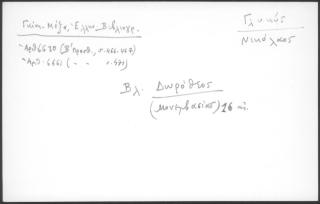 Γκίκα-Μέξα, Ἑλλην. Βιβλιογρ.
Ἀρθ. 6620 (Β' προσθ., σ. 466-467)
Ἀρθ. 6661 ( " " σ. 471)
Γλυκύς
Νικόλαος
Βλ. Δωρόθεος
(Μονεμβασίας) 16 αἰ.